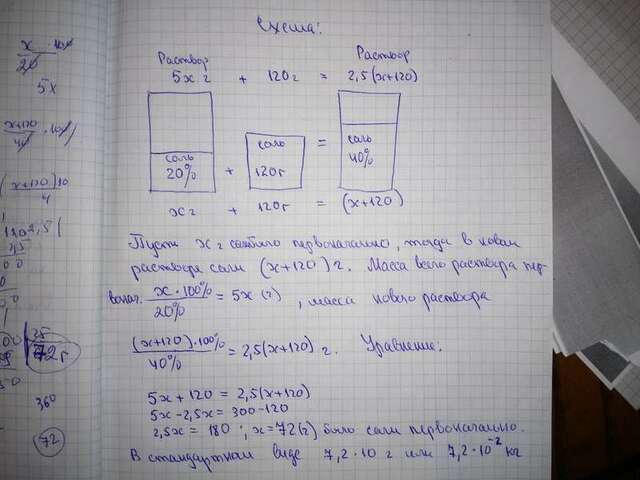 Схема:
Раствор Раствор
5x г + 120 г = 2,5(x+120)
соль 20% + соль 120г = соль 40%
x г + 120г = (x+120)
Пусть x г соли было первоначально, тогда в новом
растворе соли (x+120) г. Масса всего раствора пер-
вонач. x·100% / 20% = 5x (г), масса нового раствора
(x+120)·100% / 40% = 2,5(x+120) г. Уравнение:
5x + 120 = 2,5(x+120)
5x - 2,5x = 300 - 120
2,5x = 180 ; x = 72 (г) было соли первоначально.
В стандартном виде 7,2·10 г или 7,2·10⁻² кг
x / 20 · 100
5x
x+120 / 40 · 100
(x+120)10 / 4
25
72 г
360
72